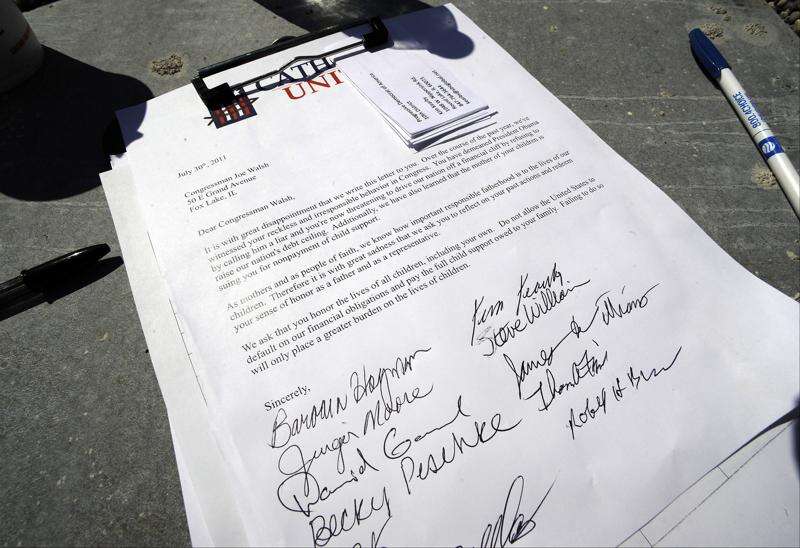 CATH
UNI
July 30th, 2011
Congressman Joe Walsh
50 E Grand Avenue
Fox Lake, IL
Dear Congressman Walsh,
It is with great disappointment that we write this letter to you. Over the course of the past year, we've
witnessed your reckless and irresponsible behavior in Congress. You have demeaned President Obama
by calling him a liar and you're now threatening to drive our nation off a financial cliff by refusing to
raise our nation's debt ceiling. Additionally, we have also learned that the mother of your children is
suing you for nonpayment of child support.
As mothers and as people of faith, we know how important responsible fatherhood is to the lives of our
children. Therefore it is with great sadness that we ask you to reflect on your past actions and redeem
your sense of honor as a father and as a representative.
We ask that you honor the lives of all children, including your own. Do not allow the United States to
default on our financial obligations and pay the full child support owed to your family. Failing to do so
will only place a greater burden on the lives of children.
Sincerely,
Ginger Moore
David
Becky Peschke
Steve William
James
Robert H
BIO ACHOICE